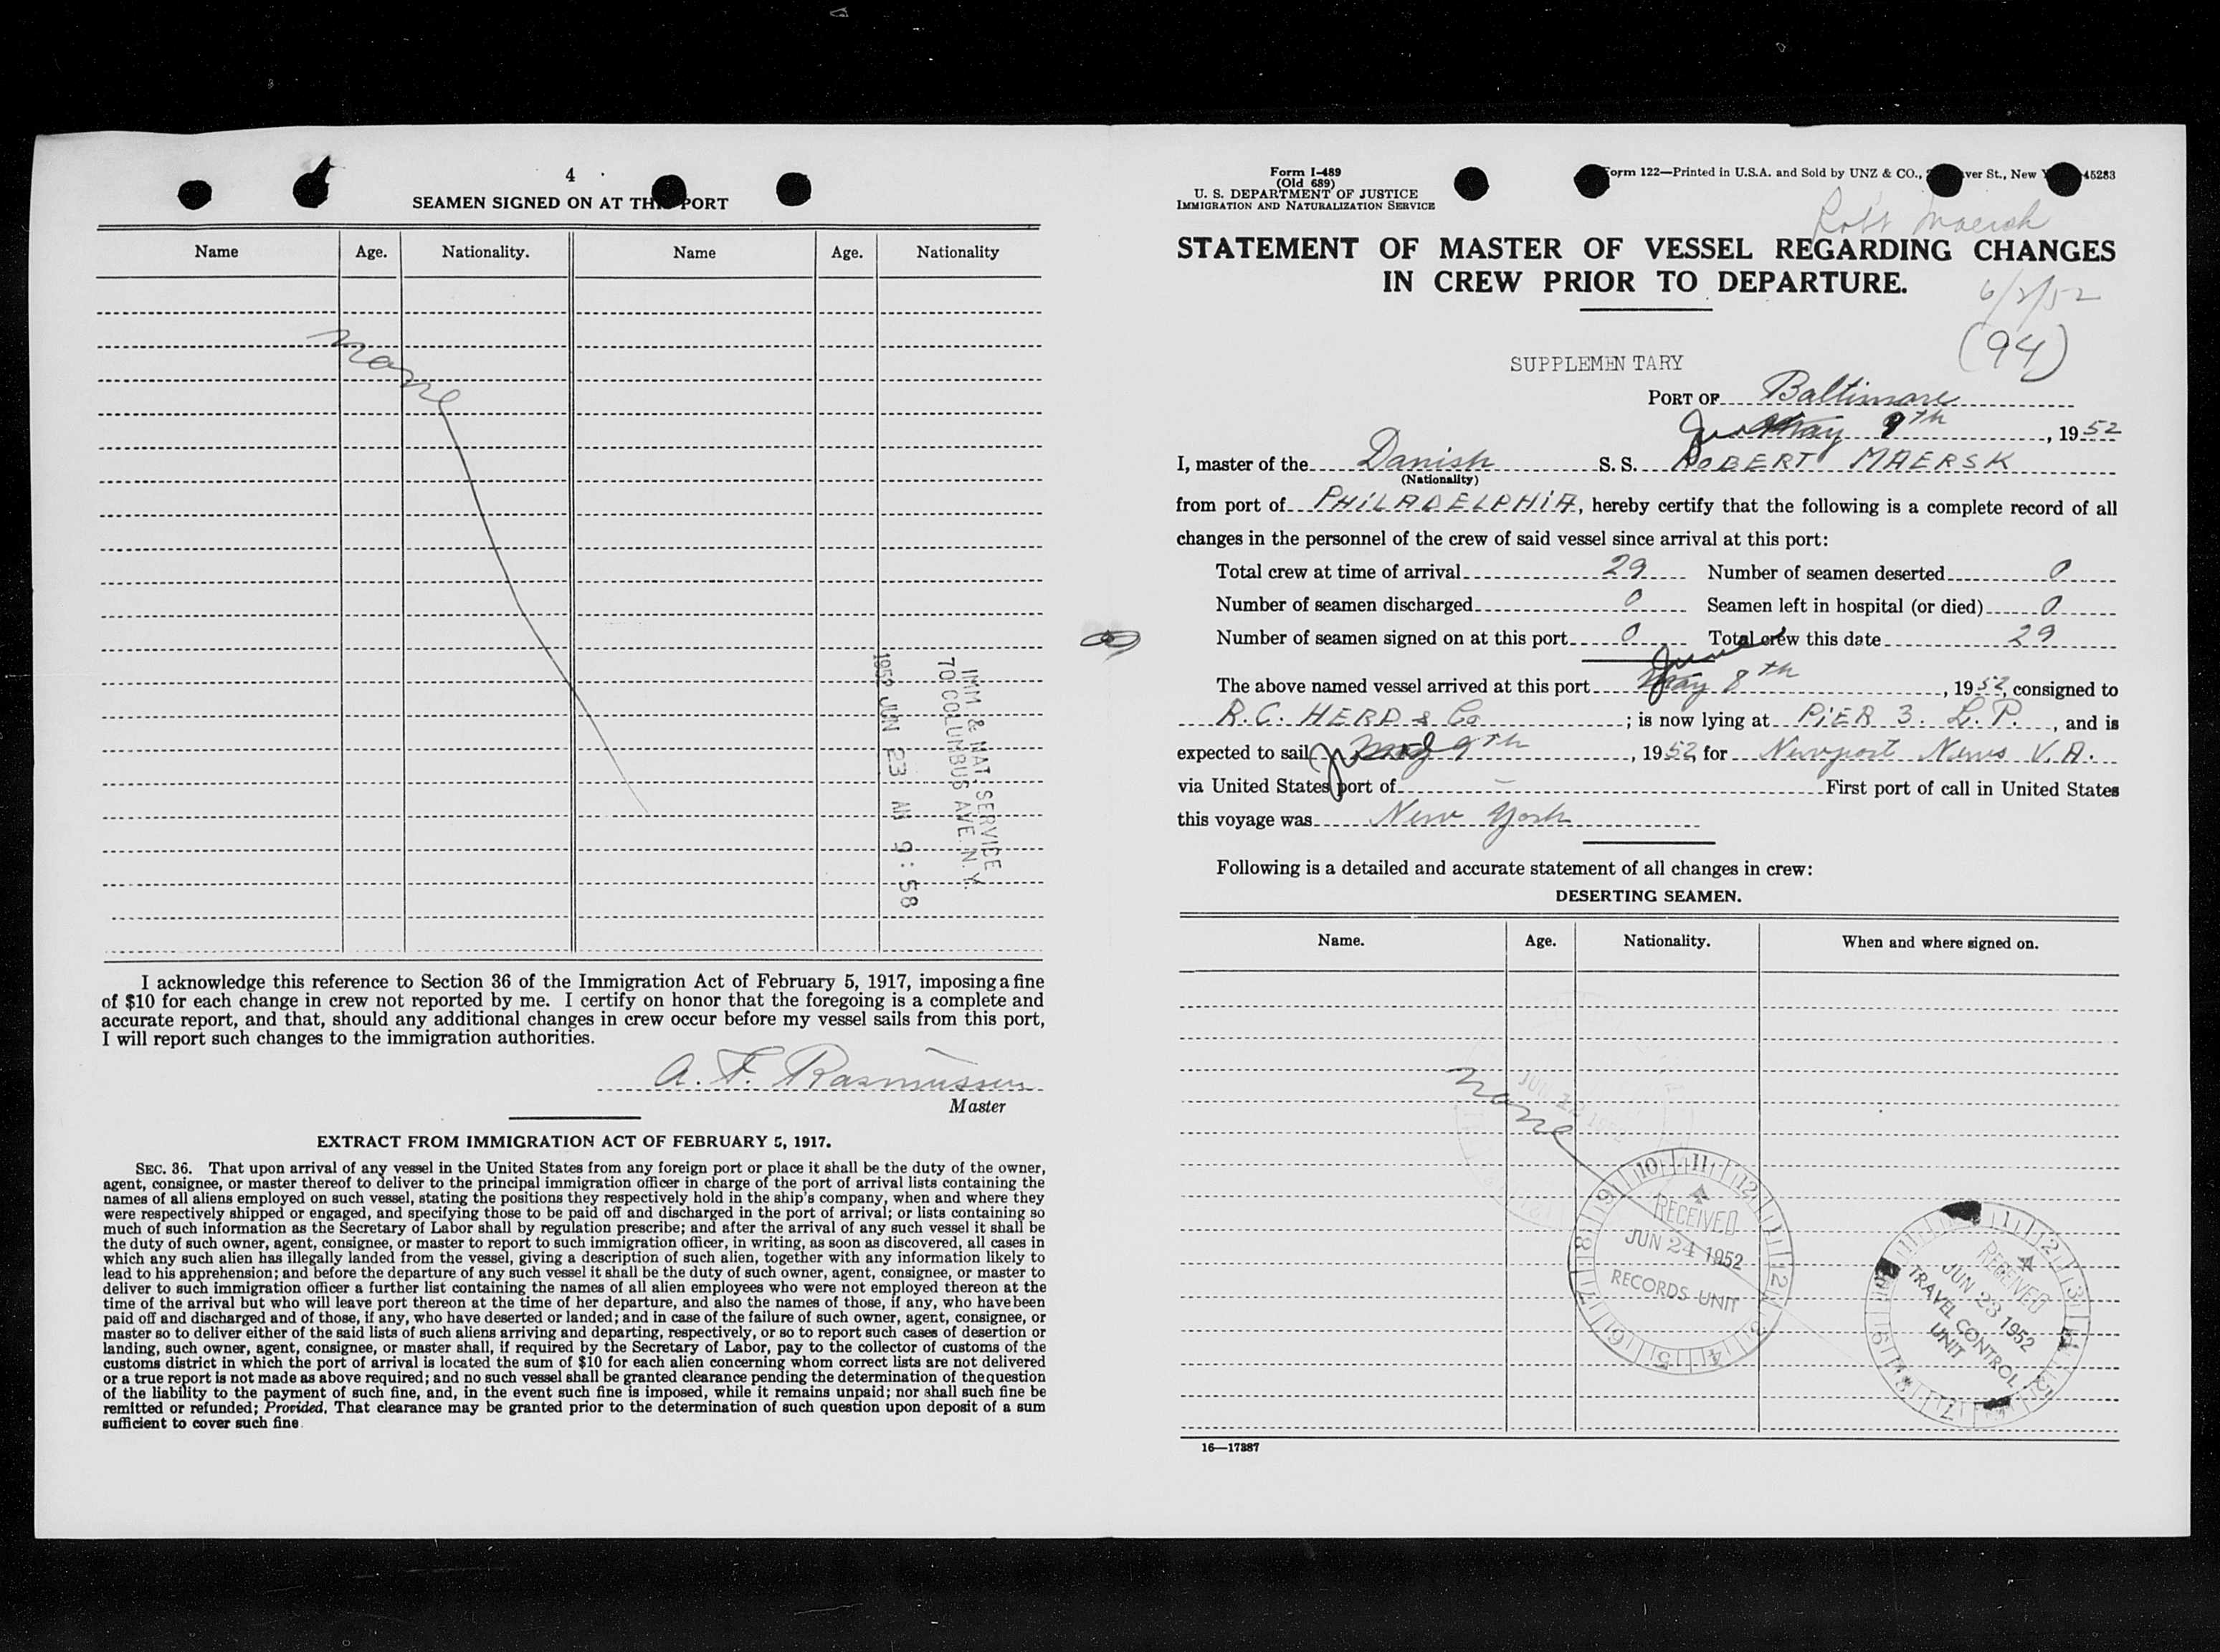 4
SEAMEN SIGNED ON AT THIS PORT
Name Age. Nationality. Name Age. Nationality
None
IMM. & NAT. SERVICE
70 COLUMBUS AVE. N. Y.
1952 JUN 23 AM 9:58
I acknowledge this reference to Section 36 of the Immigration Act of February 5, 1917, imposing a fine
of $10 for each change in crew not reported by me. I certify on honor that the foregoing is a complete and
accurate report, and that, should any additional changes in crew occur before my vessel sails from this port,
I will report such changes to the immigration authorities.
A. F. Rasmussen
Master
EXTRACT FROM IMMIGRATION ACT OF FEBRUARY 5, 1917.
SEC. 36. That upon arrival of any vessel in the United States from any foreign port or place it shall be the duty of the owner,
agent, consignee, or master thereof to deliver to the principal immigration officer in charge of the port of arrival lists containing the
names of all aliens employed on such vessel, stating the positions they respectively hold in the ship's company, when and where they
were respectively shipped or engaged, and specifying those to be paid off and discharged in the port of arrival; or lists containing so
much of such information as the Secretary of Labor shall by regulation prescribe; and after the arrival of any such vessel it shall be
the duty of such owner, agent, consignee, or master to report to such immigration officer, in writing, as soon as discovered, all cases in
which any such alien has illegally landed from the vessel, giving a description of such alien, together with any information likely to
lead to his apprehension; and before the departure of any such vessel it shall be the duty of such owner, agent, consignee, or master to
deliver to such immigration officer a further list containing the names of all alien employees who were not employed thereon at the
time of the arrival but who will leave port thereon at the time of her departure, and also the names of those, if any, who have been
paid off and discharged and of those, if any, who have deserted or landed; and in case of the failure of such owner, agent, consignee, or
master so to deliver either of the said lists of such aliens arriving and departing, respectively, or so to report such cases of desertion or
landing, such owner, agent, consignee, or master shall, if required by the Secretary of Labor, pay to the collector of customs of the
customs district in which the port of arrival is located the sum of $10 for each alien concerning whom correct lists are not delivered
or a true report is not made as above required; and no such vessel shall be granted clearance pending the determination of the question
of the liability to the payment of such fine, and, in the event such fine is imposed, while it remains unpaid; nor shall such fine be
remitted or refunded; Provided, That clearance may be granted prior to the determination of such question upon deposit of a sum
sufficient to cover such fine.
Form I-489
(Old 689)
U. S. DEPARTMENT OF JUSTICE
IMMIGRATION AND NATURALIZATION SERVICE
Form 122—Printed in U.S.A. and Sold by UNZ & CO., St., New 45283
Robt Maersk
STATEMENT OF MASTER OF VESSEL REGARDING CHANGES
IN CREW PRIOR TO DEPARTURE.
(94)
SUPPLEMENTARY
PORT OF Baltimore
June May 9th, 1952
I, master of the Danish S. S. ROBERT MAERSK
(Nationality)
from port of PHILADELPHIA, hereby certify that the following is a complete record of all
changes in the personnel of the crew of said vessel since arrival at this port:
Total crew at time of arrival 29 Number of seamen deserted 0
Number of seamen discharged 0 Seamen left in hospital (or died) 0
Number of seamen signed on at this port 0 Total crew this date 29
June
The above named vessel arrived at this port May 8th, 1952, consigned to
R.C. HERD & Co; is now lying at PIER 3. L.P., and is
expected to sail May 9th, 1952 for Newport News V.A.
via United States port of — First port of call in United States
this voyage was New York
Following is a detailed and accurate statement of all changes in crew:
DESERTING SEAMEN.
Name. Age. Nationality. When and where signed on.
None
RECEIVED
JUN 24 1952
RECORDS UNIT
RECEIVED
JUN 23 1952
TRAVEL CONTROL
UNIT
16—17387